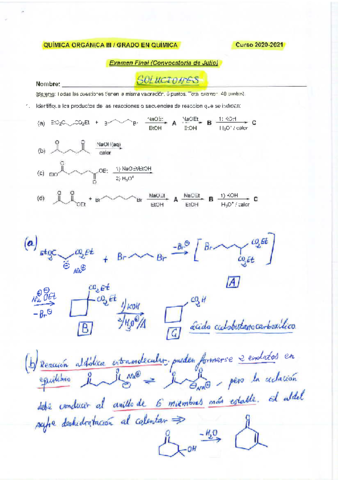 QUÍMICA ORGÁNICA III / GRADO EN QUÍMICA Curso 2020-2021
Examen Final (Convocatoria de Julio)
Nombre: SOLUCIONES
Todas las cuestiones tienen la misma valoración: puntos.
1. Identifica los productos de las reacciones o secuencias de reacción que se indican:
(a) EtO₂C CO₂Et + Br Br NaOEt EtOH A NaOEt EtOH B 1) KOH H₃O⁺ / calor C
(b) NaOH(aq) calor
(c) OEt 1) NaOEt/EtOH 2) H₃O⁺
(d) OEt + Br Br NaOEt EtOH A NaOEt EtOH B 1) KOH H₃O⁺ / calor C
(a)
EtO₂C CO₂Et Na⊕ + Br Br -Br⊖ [ Br CO₂Et CO₂Et ]
A
Na⊕ ⊖OEt -Br⊖ CO₂Et CO₂Et 1) KOH 2) H₃O⊕/Δ CO₂H
B C ácido ciclobutanocarboxílico
(b) Reacción aldólica intramolecular, pueden formarse 2 enolatos en
equilibrio Na⊕ Na⊕, pero la ciclación
debe conducir al anillo de 6 miembros más estable. El aldol
sufre deshidratación al calentar ⇒
O OH -H₂O O